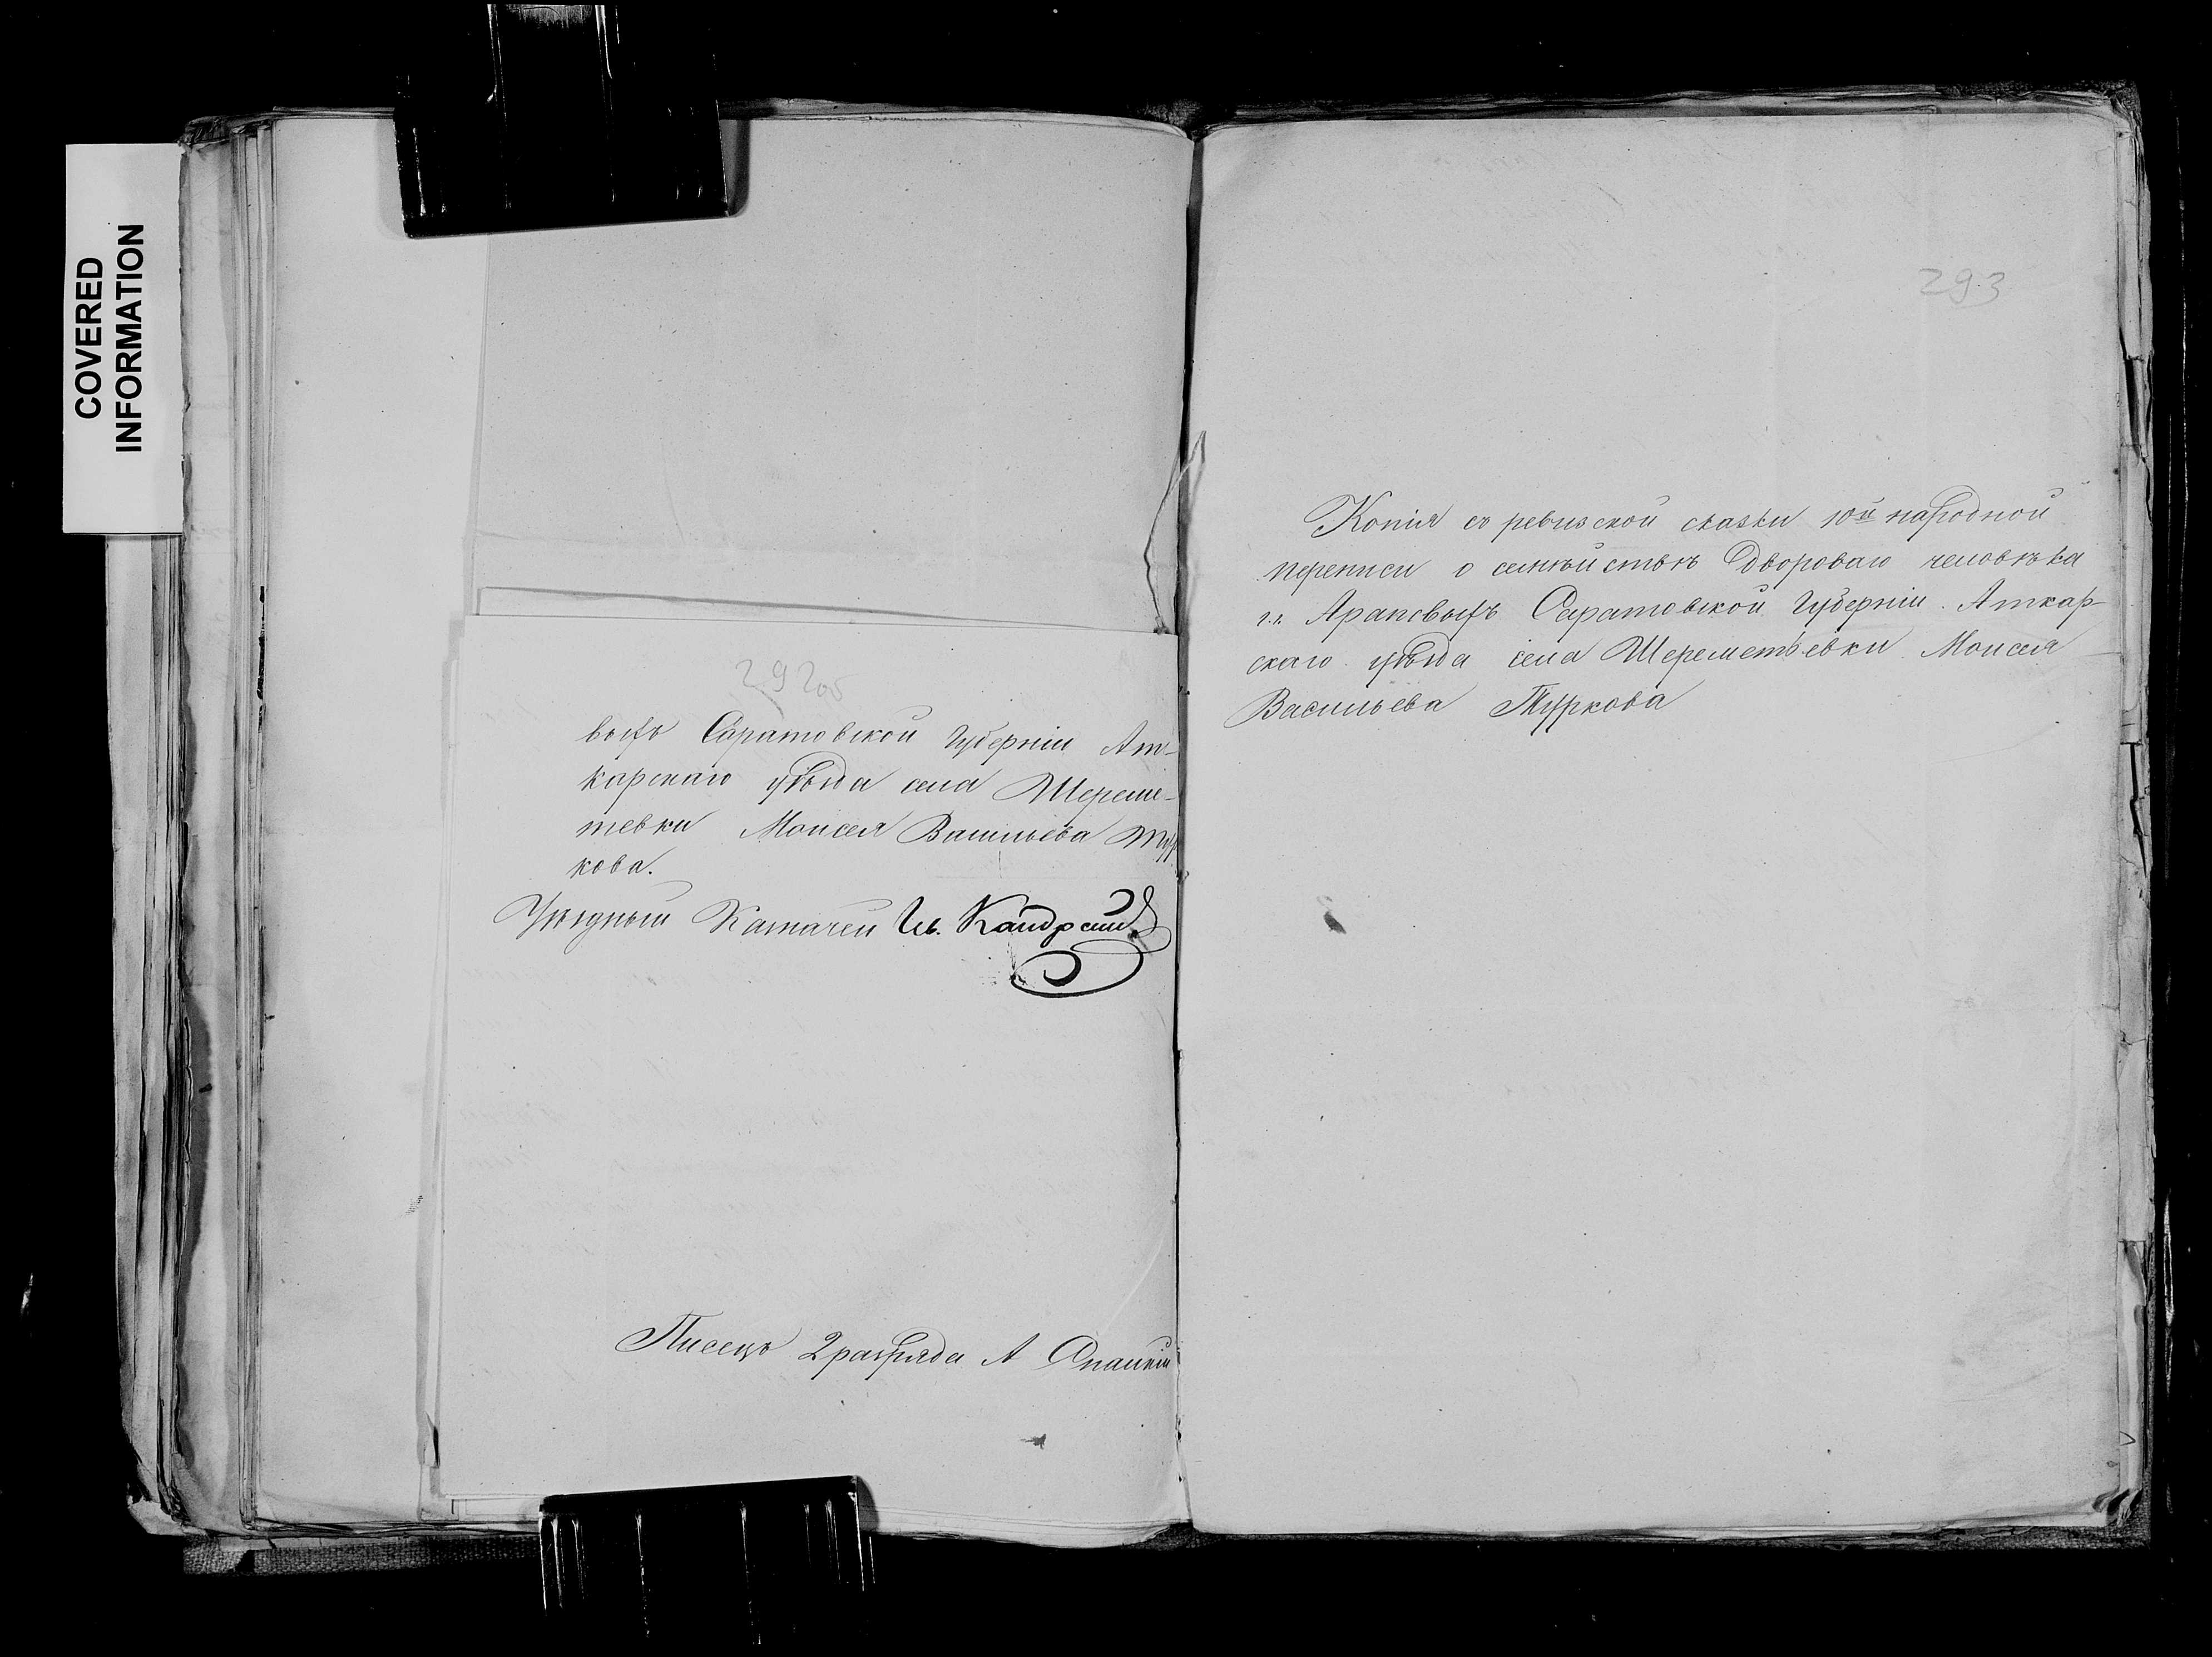 COVERED
INFORMATION
292об
выхъ Саратовской Губерніи Ат-
карскаго уѣзда села Шереме-
тевки Моисея Васильева Тур
кова.
Уѣздный Казначей Ив.
Писецъ 2 разряда А
293
Копія съ ревизской сказки 10й народной
переписи о семѣйствѣ Двороваго человѣка
г.г. Араповыхъ Саратовской Губерніи Аткар-
скаго уѣзда села Шереметьевки Моисея
Васильева Туркова